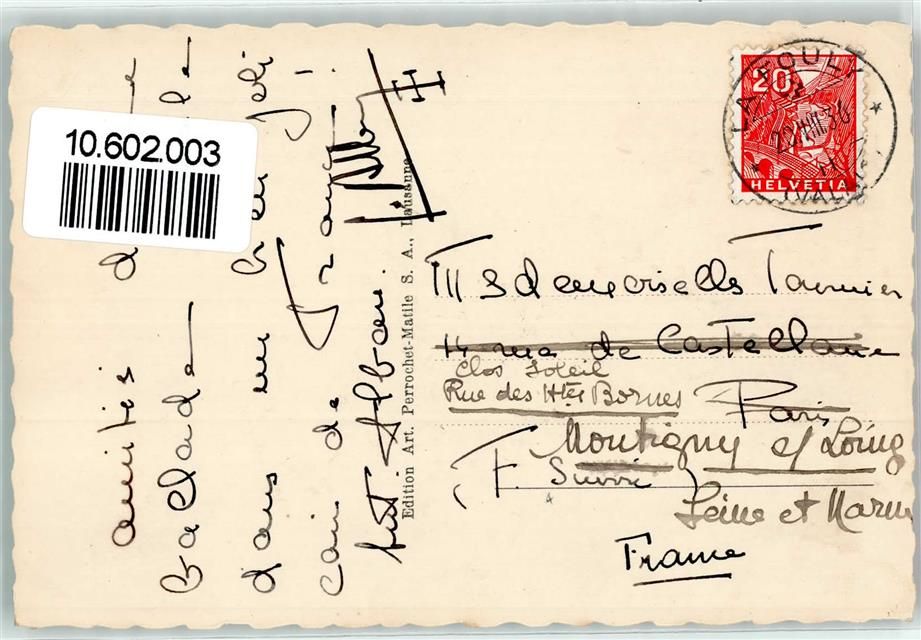 10.602.003
amitiés de
Balade
dans un joli
coin de
Edition Art. Perrochet-Matile S. A., Lausanne
20
HELVETIA
LA FOULY
22.VIII.36
(VALAIS)
Mesdemoiselles Tournier
14 rue de Castellane
Clos Soleil
Rue des Htes Bornes
Paris
Montigny s/ Loing
(F. Suivre)
Seine et Marne
France